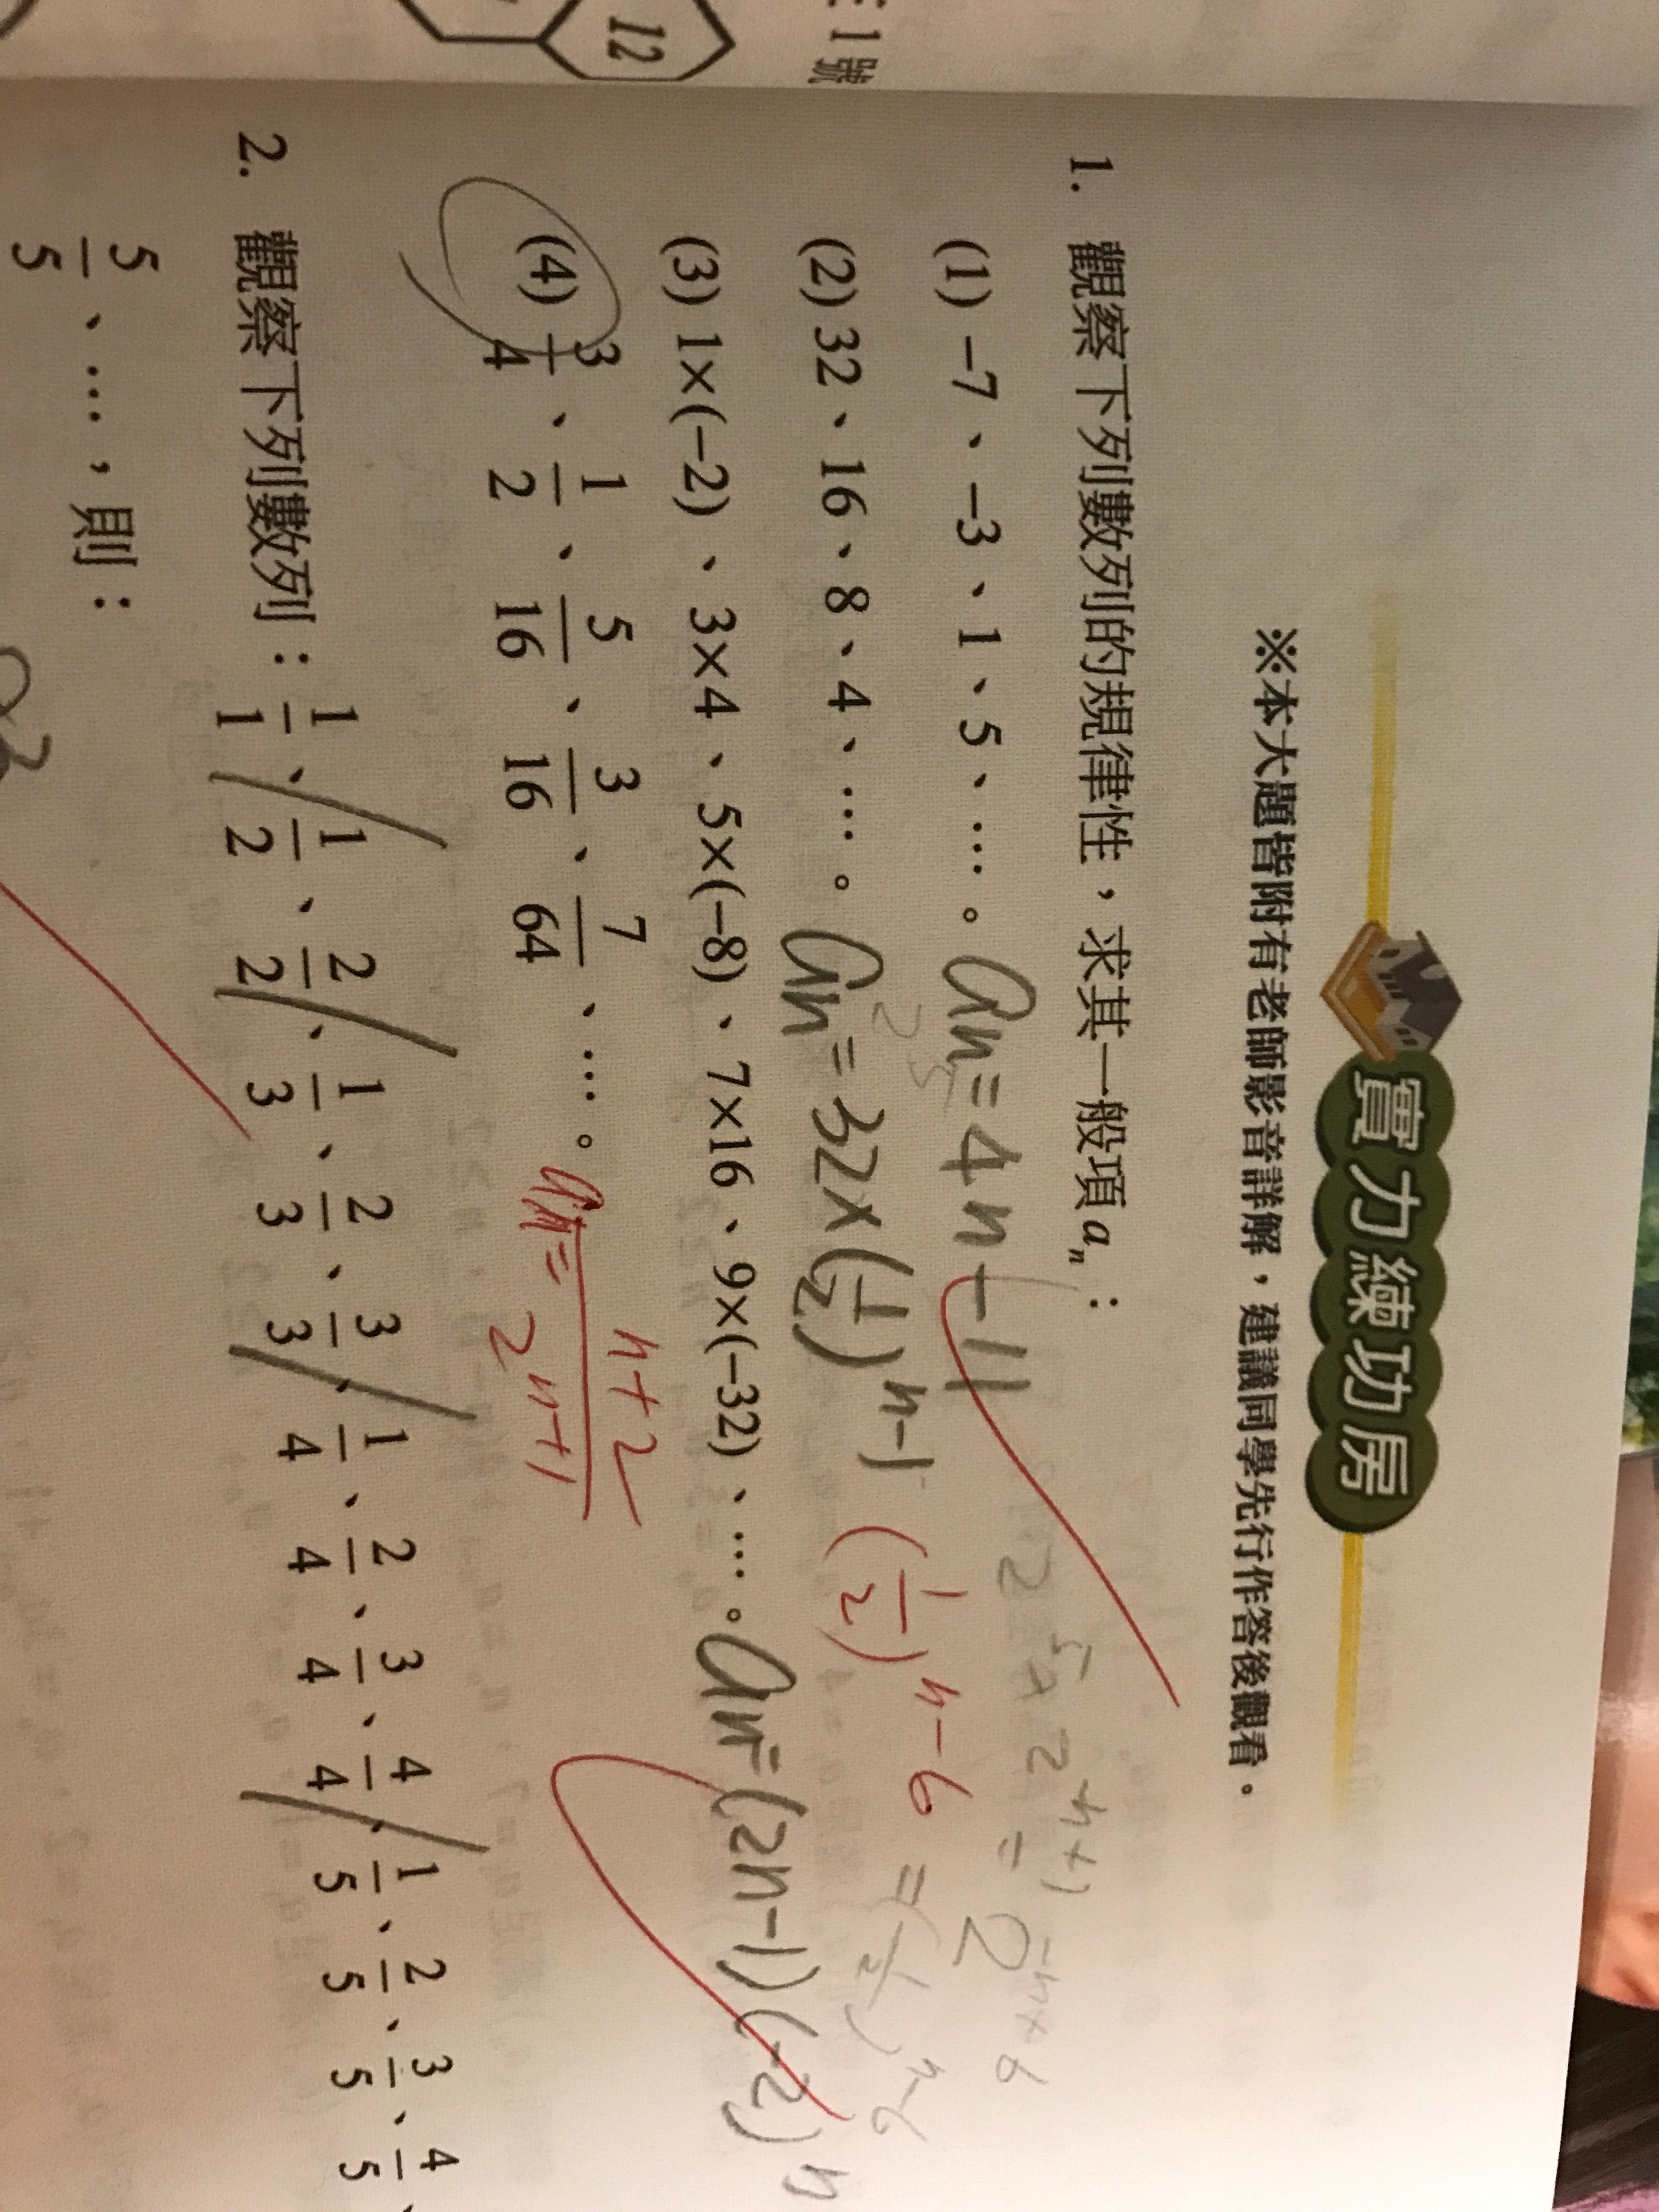 12
1號
實力練功房
※本大題皆附有老師影音詳解，建議同學先行作答後觀看。
1. 觀察下列數列的規律性，求其一般項 aₙ：
(1) −7、−3、1、5、…。 an = 4n − 11
(2) 32、16、8、4、…。 an = 32×(1/2)^(n−1) (1/2)^(n−6) = (1/2)^(n−6)
(3) 1×(−2)、3×4、5×(−8)、7×16、9×(−32)、…。 an = (2n−1)(−2)^n
(4) 3/4、1/2、5/16、3/16、7/64、…。 an = n+2/2^(n+1)
2. 觀察下列數列：1/1、1/2、2/2、1/3、2/3、3/3、1/4、2/4、3/4、4/4、1/5、2/5、3/5、4/5、
5/5、…，則：